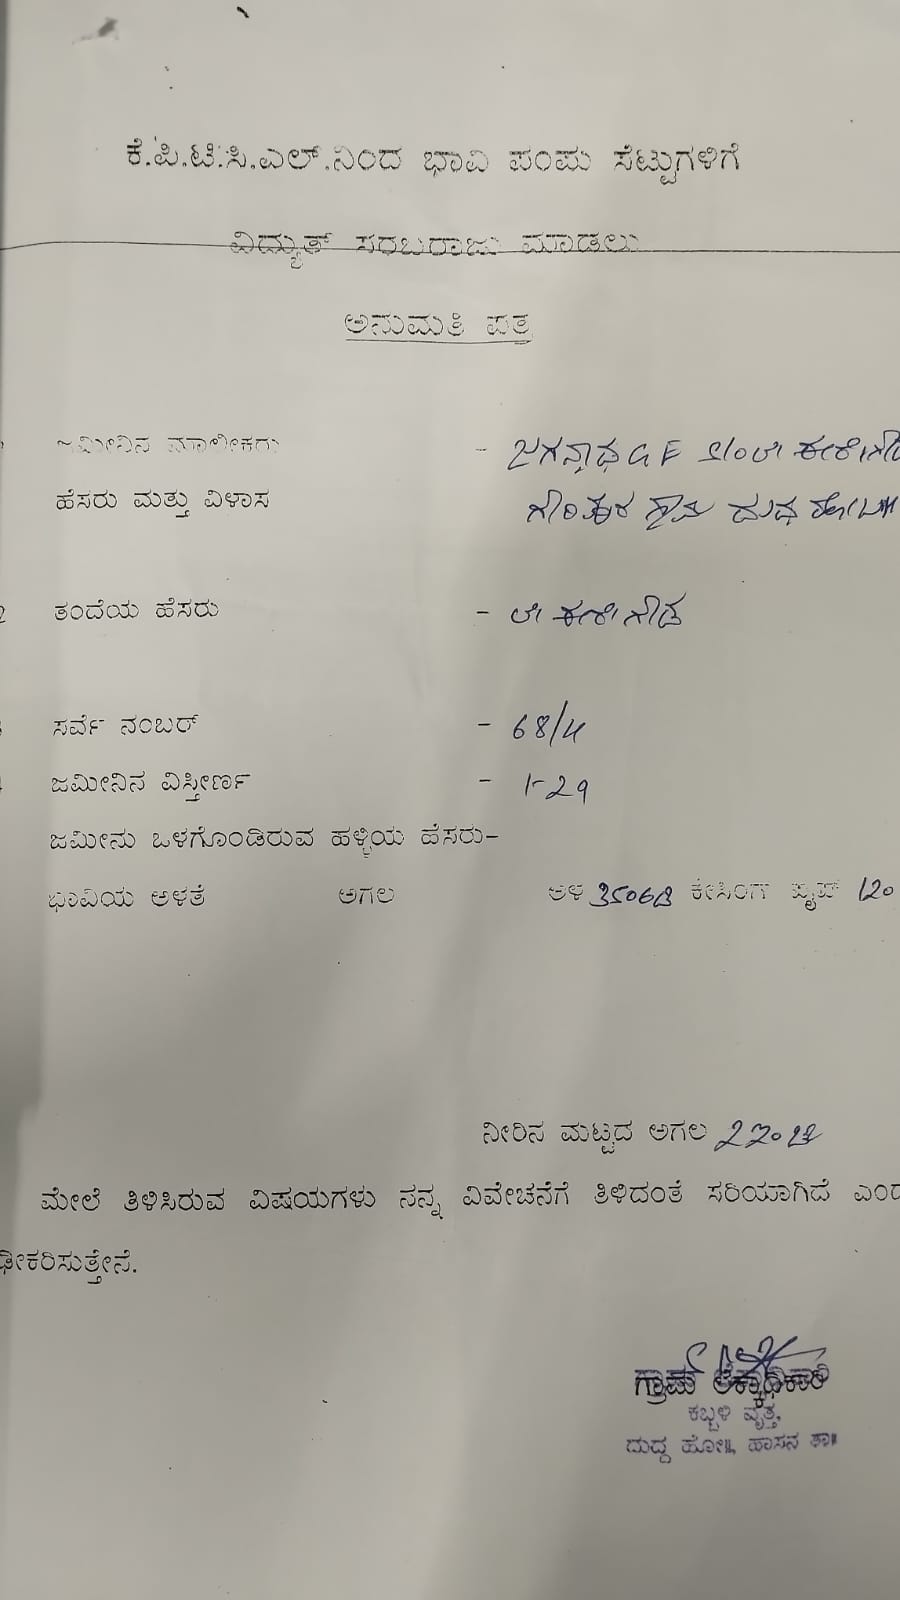 ಕೆ.ಪಿ.ಟಿ.ಸಿ.ಎಲ್.ನಿಂದ ಭಾವಿ ಪಂಪು ಸೆಟ್ಟುಗಳಿಗೆ
ವಿದ್ಯುತ್ ಸರಬರಾಜು ಮಾಡಲು
ಅನುಮತಿ ಪತ್ರ
ಜಮೀನಿನ ಮಾಲೀಕರು - ಜಗನ್ನಾಥ
ಹೆಸರು ಮತ್ತು ವಿಳಾಸ ಗ್ರಾಮ ದುದ್ದ
2 ತಂದೆಯ ಹೆಸರು -
ಸರ್ವೆ ನಂಬರ್ - 68/4
ಜಮೀನಿನ ವಿಸ್ತೀರ್ಣ - 1-29
ಜಮೀನು ಒಳಗೊಂಡಿರುವ ಹಳ್ಳಿಯ ಹೆಸರು-
ಭಾವಿಯ ಅಳತೆ ಅಗಲ ಆಳ ಕೇಸಿಂಗ್ ಪೈಪ್ 120
ನೀರಿನ ಮಟ್ಟದ ಅಗಲ
ಮೇಲೆ ತಿಳಿಸಿರುವ ವಿಷಯಗಳು ನನ್ನ ವಿವೇಚನೆಗೆ ತಿಳಿದಂತೆ ಸರಿಯಾಗಿದೆ ಎಂದ
ಢೀಕರಿಸುತ್ತೇನೆ.
ಗ್ರಾಮ ಲೆಕ್ಕಾಧಿಕಾರಿ
ಕಬ್ಬಳಿ ವೃತ್ತ,
ದುದ್ದ ಹೋ||, ಹಾಸನ ತಾ||